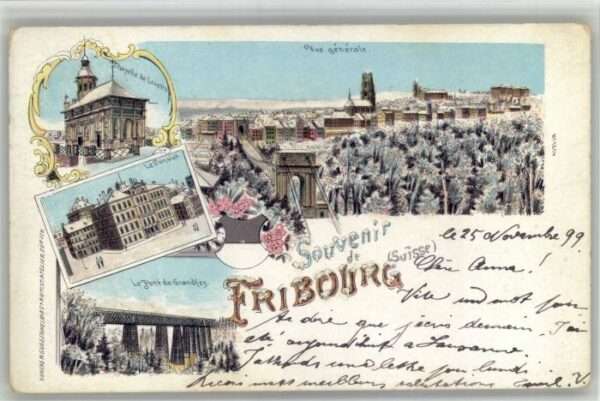 Vue générale
Chapelle de Lorette
Le Pensionat
Le Pont de Grandfey
Souvenir
de
FRIBOURG
(SUISSE)
le 25 Novembre 99
Chère Anna!
Vite un mot pour
te dire que j'écris demain. J'ai
été aujourd'hui à Lausanne.
J'attends une lettre pour lundi.
Reçois mes meilleurs salutations